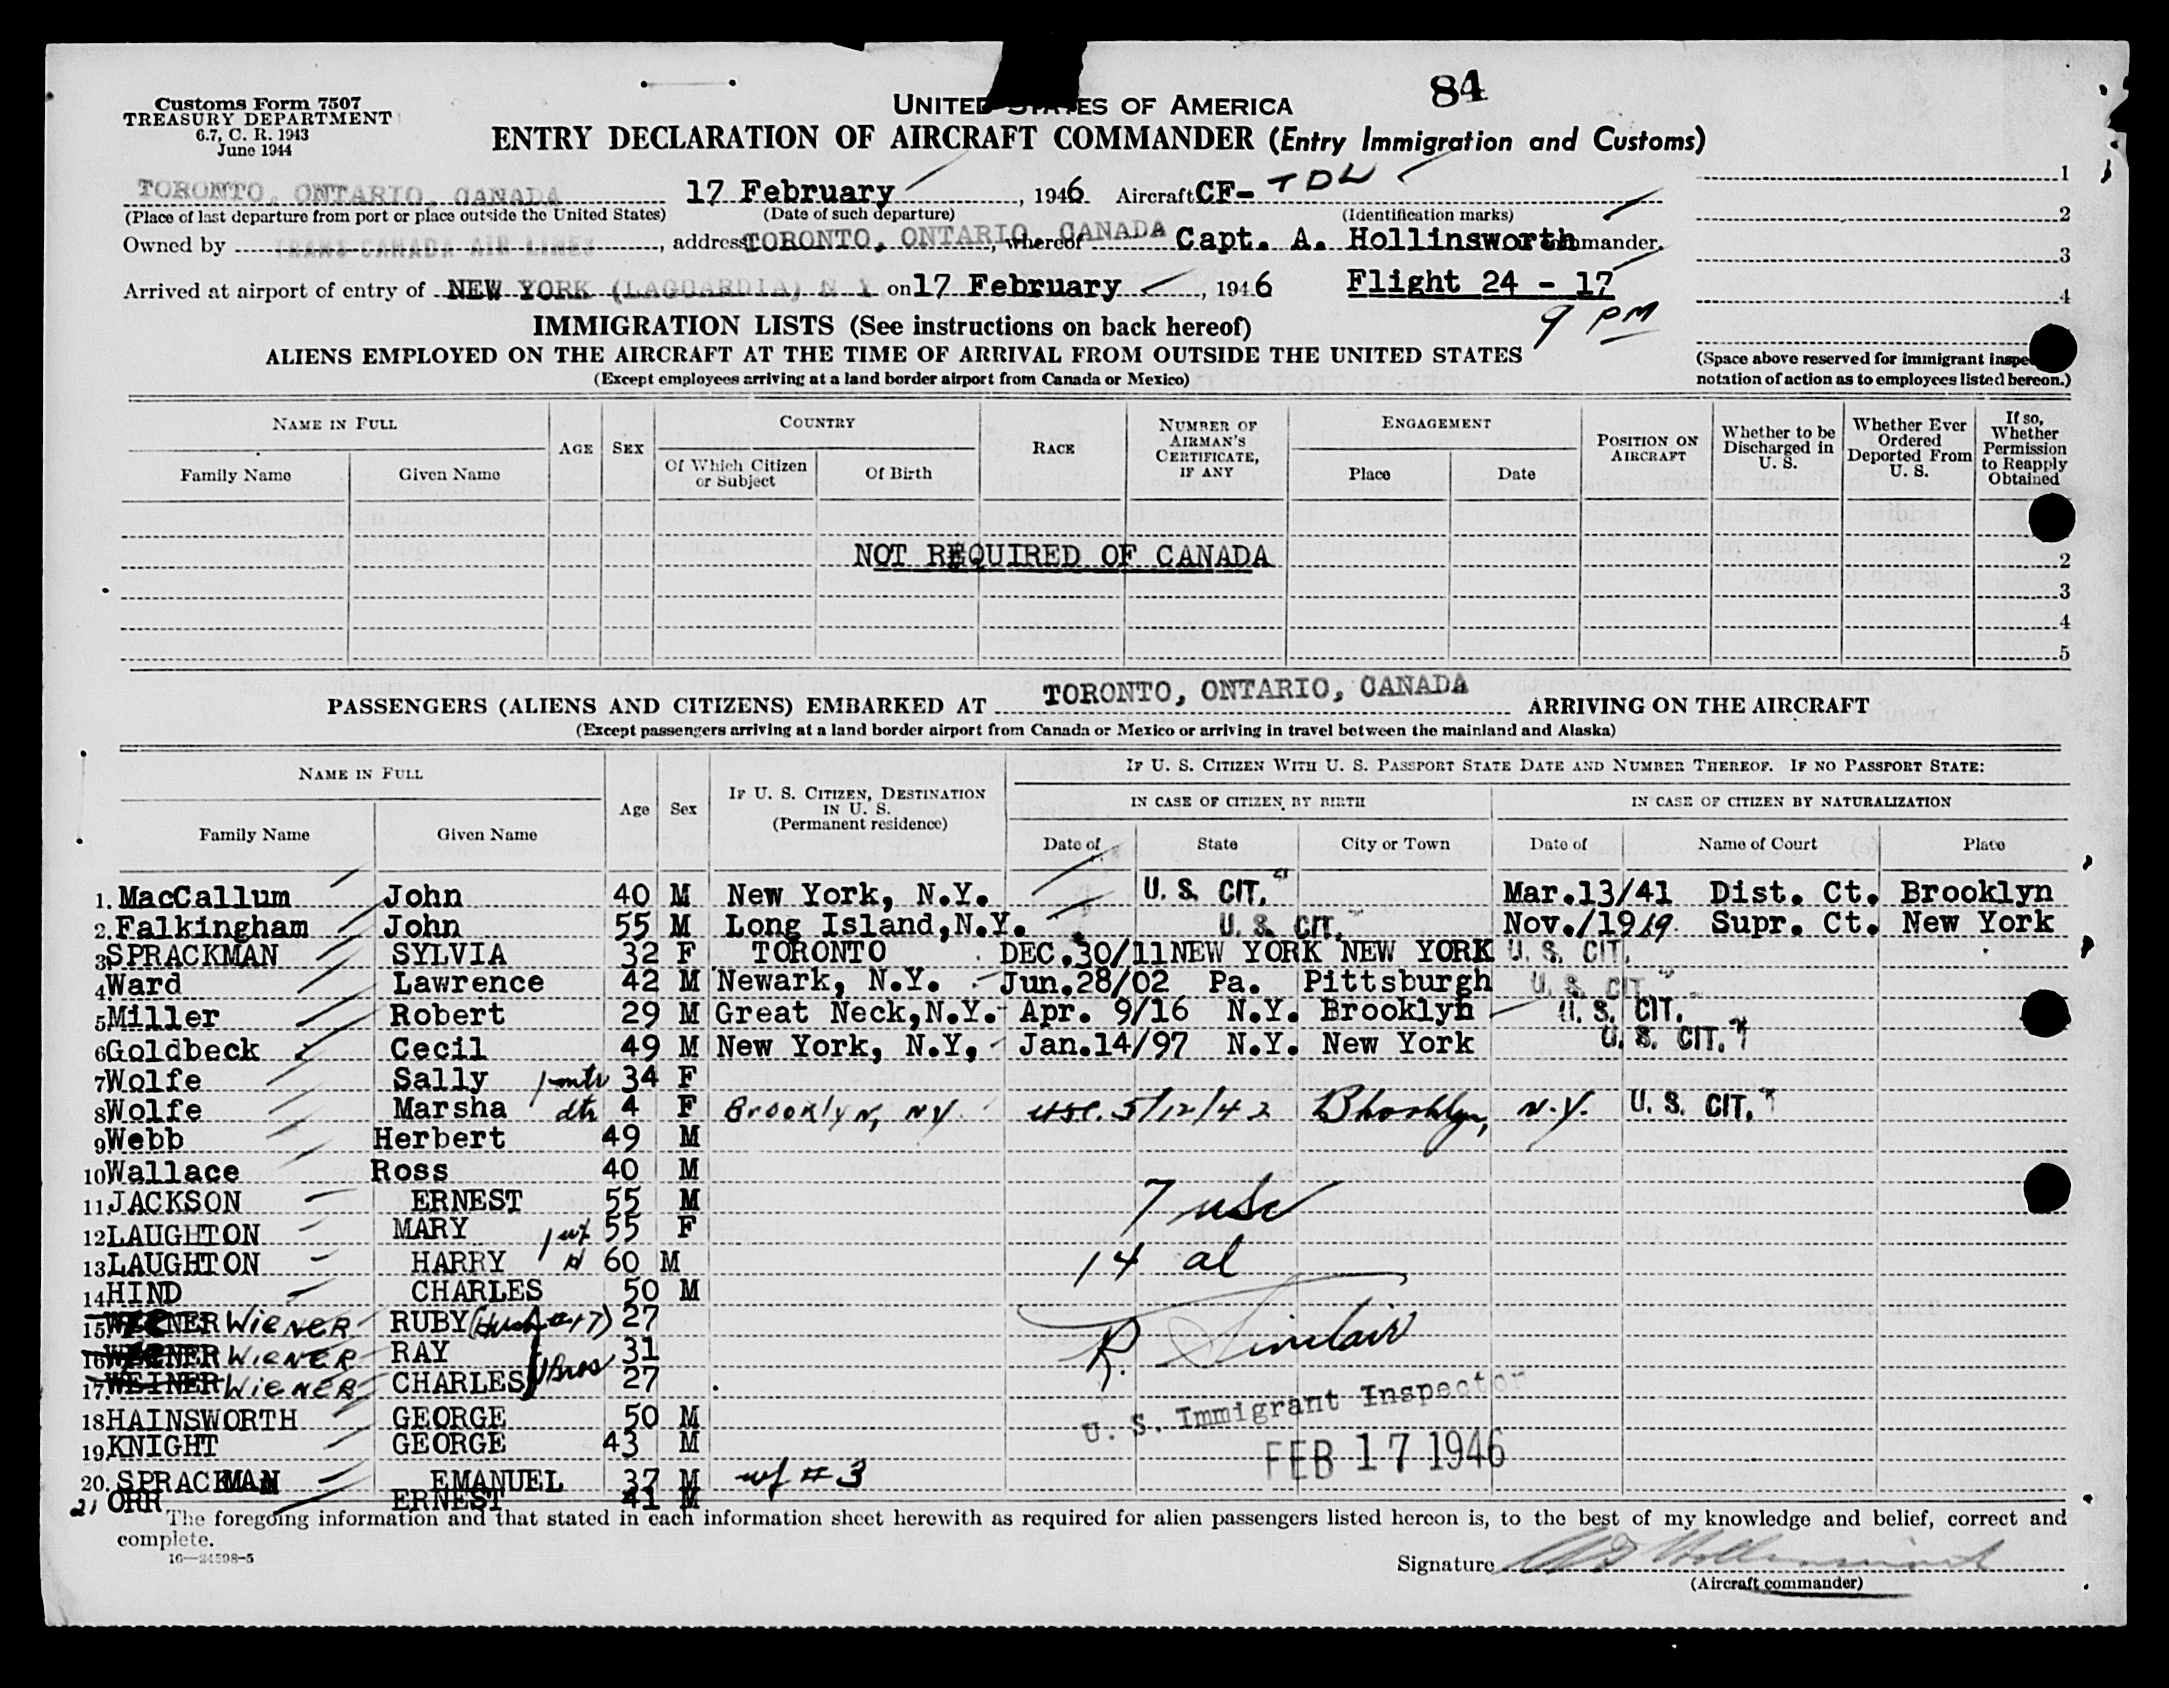 84
Customs Form 7507
TREASURY DEPARTMENT
6.7, C. R. 1943
June 1944
UNITED STATES OF AMERICA
ENTRY DECLARATION OF AIRCRAFT COMMANDER (Entry Immigration and Customs)
TORONTO, ONTARIO, CANADA 17 February, 1946 Aircraft CF- TDL
(Place of last departure from port or place outside the United States) (Date of such departure) (Identification marks)
Owned by TRANS-CANADA AIR LINES, address TORONTO, ONTARIO, CANADA, whereof Capt. A. Hollinsworth commander.
Arrived at airport of entry of NEW YORK (LAGUARDIA) N Y on 17 February, 1946 Flight 24 - 17
9 PM
1
2
3
4
(Space above reserved for immigrant
notation of action as to employees listed hereon.)
IMMIGRATION LISTS (See instructions on back hereof)
ALIENS EMPLOYED ON THE AIRCRAFT AT THE TIME OF ARRIVAL FROM OUTSIDE THE UNITED STATES
(Except employees arriving at a land border airport from Canada or Mexico)
NAME IN FULL
Family Name Given Name
AGE SEX
COUNTRY
Of Which Citizen or Subject Of Birth
RACE
NUMBER OF AIRMAN'S CERTIFICATE, IF ANY
ENGAGEMENT
Place Date
POSITION ON AIRCRAFT
Whether to be Discharged in U. S.
Whether Ever Ordered Deported From U. S.
If so, Whether Permission to Reapply Obtained
NOT REQUIRED OF CANADA
2
3
4
5
PASSENGERS (ALIENS AND CITIZENS) EMBARKED AT TORONTO, ONTARIO, CANADA ARRIVING ON THE AIRCRAFT
(Except passengers arriving at a land border airport from Canada or Mexico or arriving in travel between the mainland and Alaska)
NAME IN FULL
Family Name Given Name
Age Sex
IF U. S. CITIZEN, DESTINATION IN U. S. (Permanent residence)
IF U. S. CITIZEN WITH U. S. PASSPORT STATE DATE AND NUMBER THEREOF. IF NO PASSPORT STATE:
IN CASE OF CITIZEN BY BIRTH IN CASE OF CITIZEN BY NATURALIZATION
Date of State City or Town Date of Name of Court Place
1. MacCallum John 40 M New York, N.Y. U. S. CIT. Mar.13/41 Dist. Ct. Brooklyn
2. Falkingham John 55 M Long Island,N.Y. U. S. CIT. Nov./1919 Supr. Ct. New York
3 SPRACKMAN SYLVIA 32 F TORONTO DEC.30/11 NEW YORK NEW YORK U. S. CIT.
4 Ward Lawrence 42 M Newark, N.Y. Jun.28/02 Pa. Pittsburgh U. S. CIT.
5 Miller Robert 29 M Great Neck,N.Y. Apr. 9/16 N.Y. Brooklyn U. S. CIT.
6 Goldbeck Cecil 49 M New York, N.Y, Jan.14/97 N.Y. New York U. S. CIT.
7 Wolfe Sally 34 F
8 Wolfe Marsha dtr 4 F Brooklyn, NY usc. 5/12/42 Brooklyn, N.Y. U. S. CIT.
9 Webb Herbert 49 M
10 Wallace Ross 40 M
11 JACKSON ERNEST 55 M 7 usc
12 LAUGHTON MARY 55 F
13 LAUGHTON HARRY 60 M 14 al
14 HIND CHARLES 50 M
15 WIENER RUBY (Husb #17) 27 R. Sinclair
16 WIENER RAY 31
17 WEINER WIENER CHARLES Bros 27
U. S. Immigrant Inspector
18 HAINSWORTH GEORGE 50 M
19 KNIGHT GEORGE 43 M FEB 17 1946
20. SPRACKMAN EMANUEL 37 M wf # 3
21 ORR ERNEST 41 M
The foregoing information and that stated in each information sheet herewith as required for alien passengers listed hereon is, to the best of my knowledge and belief, correct and
complete.
16—24598-5
Signature
(Aircraft commander)